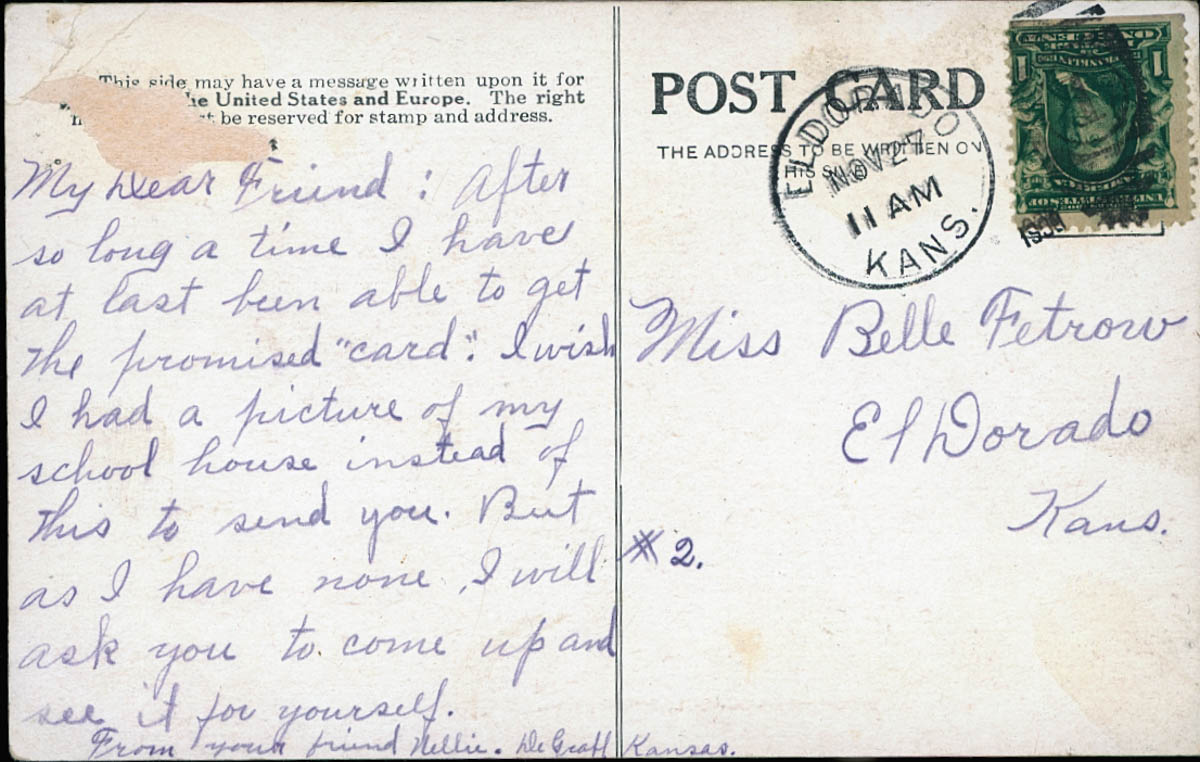 This side may have a message written upon it for
he United States and Europe. The right
t be reserved for stamp and address.
My Dear Friend: After
so long a time I have
at last been able to get
the promised "card". I wish
I had a picture of my
school house instead of
this to send you. But
as I have none, I will
ask you to come up and
see it for yourself.
From your friend Nellie. De Graff Kansas.
POST CARD
THE ADDRESS TO BE WRITTEN ON
THIS SIDE
EL DORADO
NOV 27
11 AM
KANS.
1 1
Miss Belle Fetrow
El Dorado
Kans.
#2.